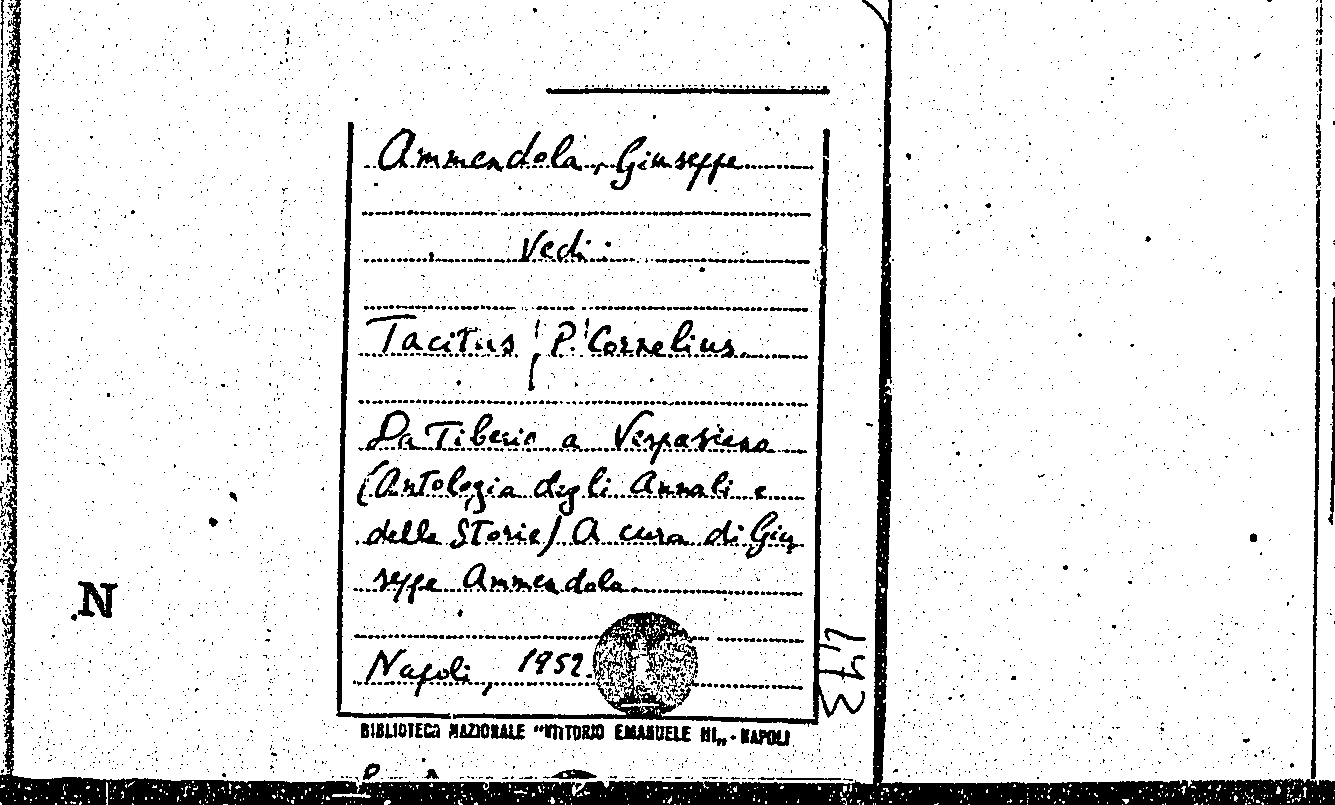 Ammendola, Giuseppe
Vedi:
Tacitus, P. Cornelius.
Da Tiberio a Vespasiano
(Antologia degli Annali e
delle Storie) A cura di Giu
seppe Ammendola.
Napoli, 1952.
BIBLIOTECA NAZIONALE "VITTORIO EMANUELE III„ - NAPOLI
N